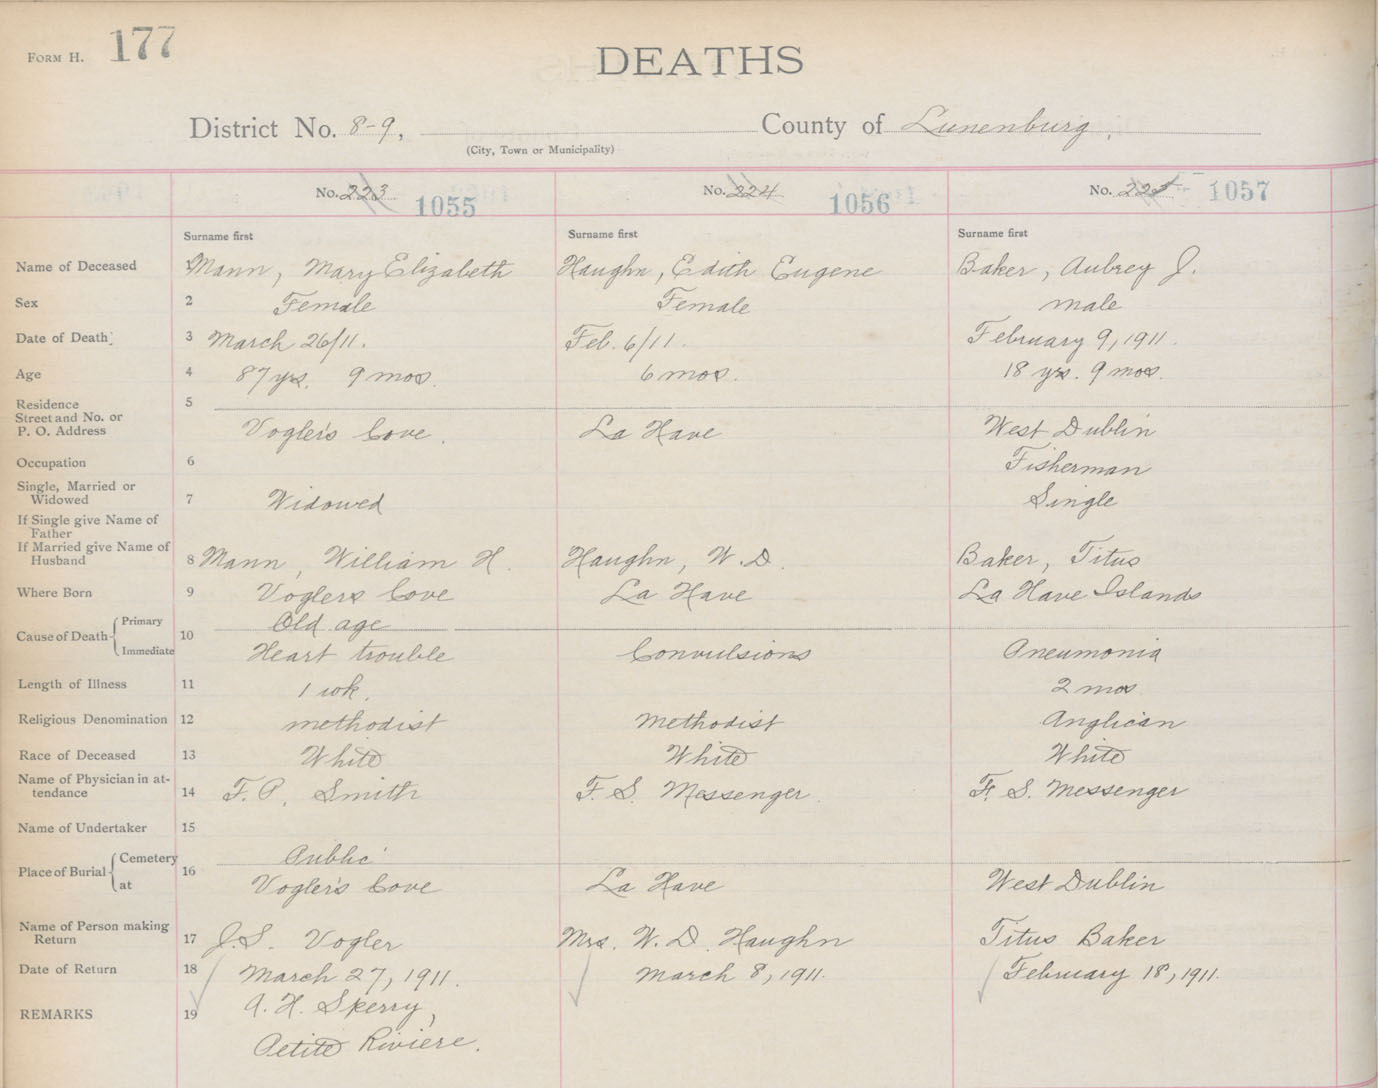 FORM H. 177
DEATHS
District No. 8-9, County of Lunenburg,
(City, Town or Municipality)
No. 223 1055 No. 224 1056 No. 225 1057
Surname first Surname first Surname first
Name of Deceased 1 Mann, Mary Elizabeth Haughn, Edith Eugene Baker, Aubrey J.
Sex 2 Female Female male
Date of Death 3 March 26/11. Feb. 6/11. February 9, 1911.
Age 4 87 yrs. 9 mos. 6 mos. 18 yrs. 9 mos.
Residence 5
Street and No. or
P. O. Address Vogler's Cove. La Have West Dublin
Occupation 6 Fisherman
Single, Married or
Widowed 7 Widowed Single
If Single give Name of
Father
If Married give Name of
Husband 8 Mann, William H. Haughn, W. D. Baker, Titus
Where Born 9 Voglers Cove La Have La Have Islands
Cause of Death Primary 10 Old age
Immediate Heart trouble Convulsions Pneumonia
Length of Illness 11 1 wk. 2 mos
Religious Denomination 12 methodist methodist Anglican
Race of Deceased 13 White White White
Name of Physician in at-
tendance 14 F. P. Smith F. S. Messenger. F. S. Messenger
Name of Undertaker 15
Place of Burial Cemetery 16 Public
at Vogler's Cove La Have West Dublin
Name of Person making
Return 17 J. S. Vogler Mrs. W. D. Haughn Titus Baker
Date of Return 18 March 27, 1911. March 8, 1911. February 18, 1911.
REMARKS 19 A. H. Sperry,
Petite Riviere.